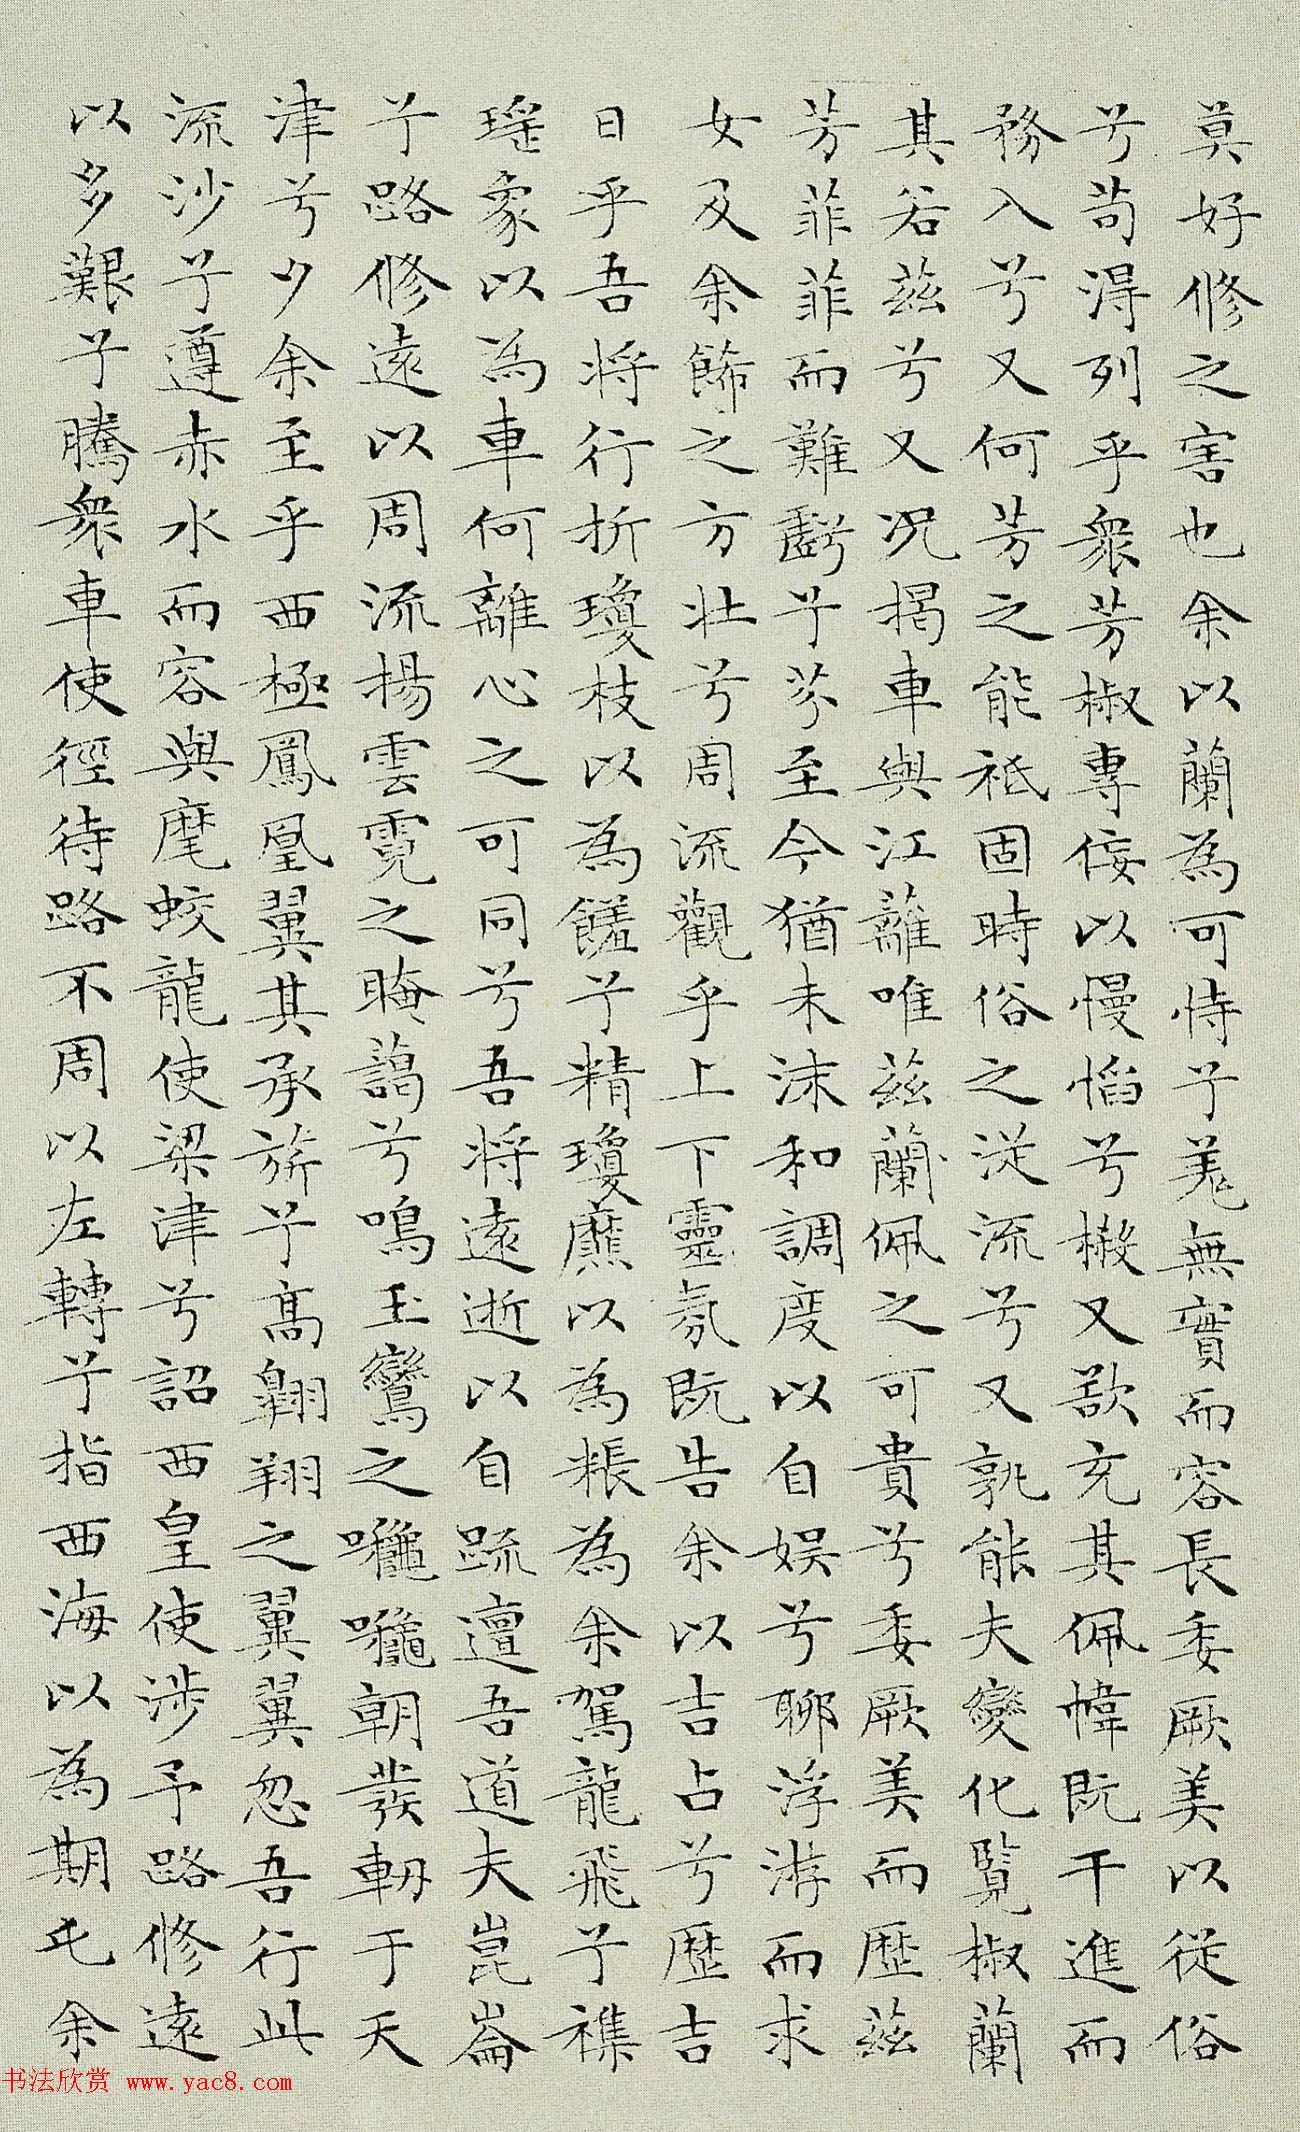 莫好脩之害也余以蘭為可恃兮羌無實而容長委厥美以從俗
兮茍得列乎衆芳椒專佞以慢慆兮樧又欲充其佩幃既干進而
務入兮又何芳之能祗固時俗之從流兮又孰能夫變化覽椒蘭
其若茲兮又况揭車與江蘺唯茲蘭佩之可貴兮委厥美而歷茲
芳菲菲而難虧兮芬至今猶未沬和調度以自娱兮聊浮游而求
女及余飾之方壯兮周流觀乎上下靈氛既告余以吉占兮歷吉
日乎吾將行折瓊枝以為饈兮精瓊爢以為粻為余駕龍飛兮襍
瑤象以為車何離心之可同兮吾將遠逝以自疏邅吾道夫崑崙
兮路脩遠以周流揚雲霓之晻藹兮鳴玉鸞之嚨嚨朝發軔于天
津兮夕余至乎西極鳳凰翼其承旂兮高翱翔之翼翼忽吾行此
流沙兮遵赤水而容與麾蛟龍使梁津兮詔西皇使涉予路脩遠
以多艱兮騰衆車使徑待路不周以左轉兮指西海以為期屯余
书法欣赏 www.yac8.com